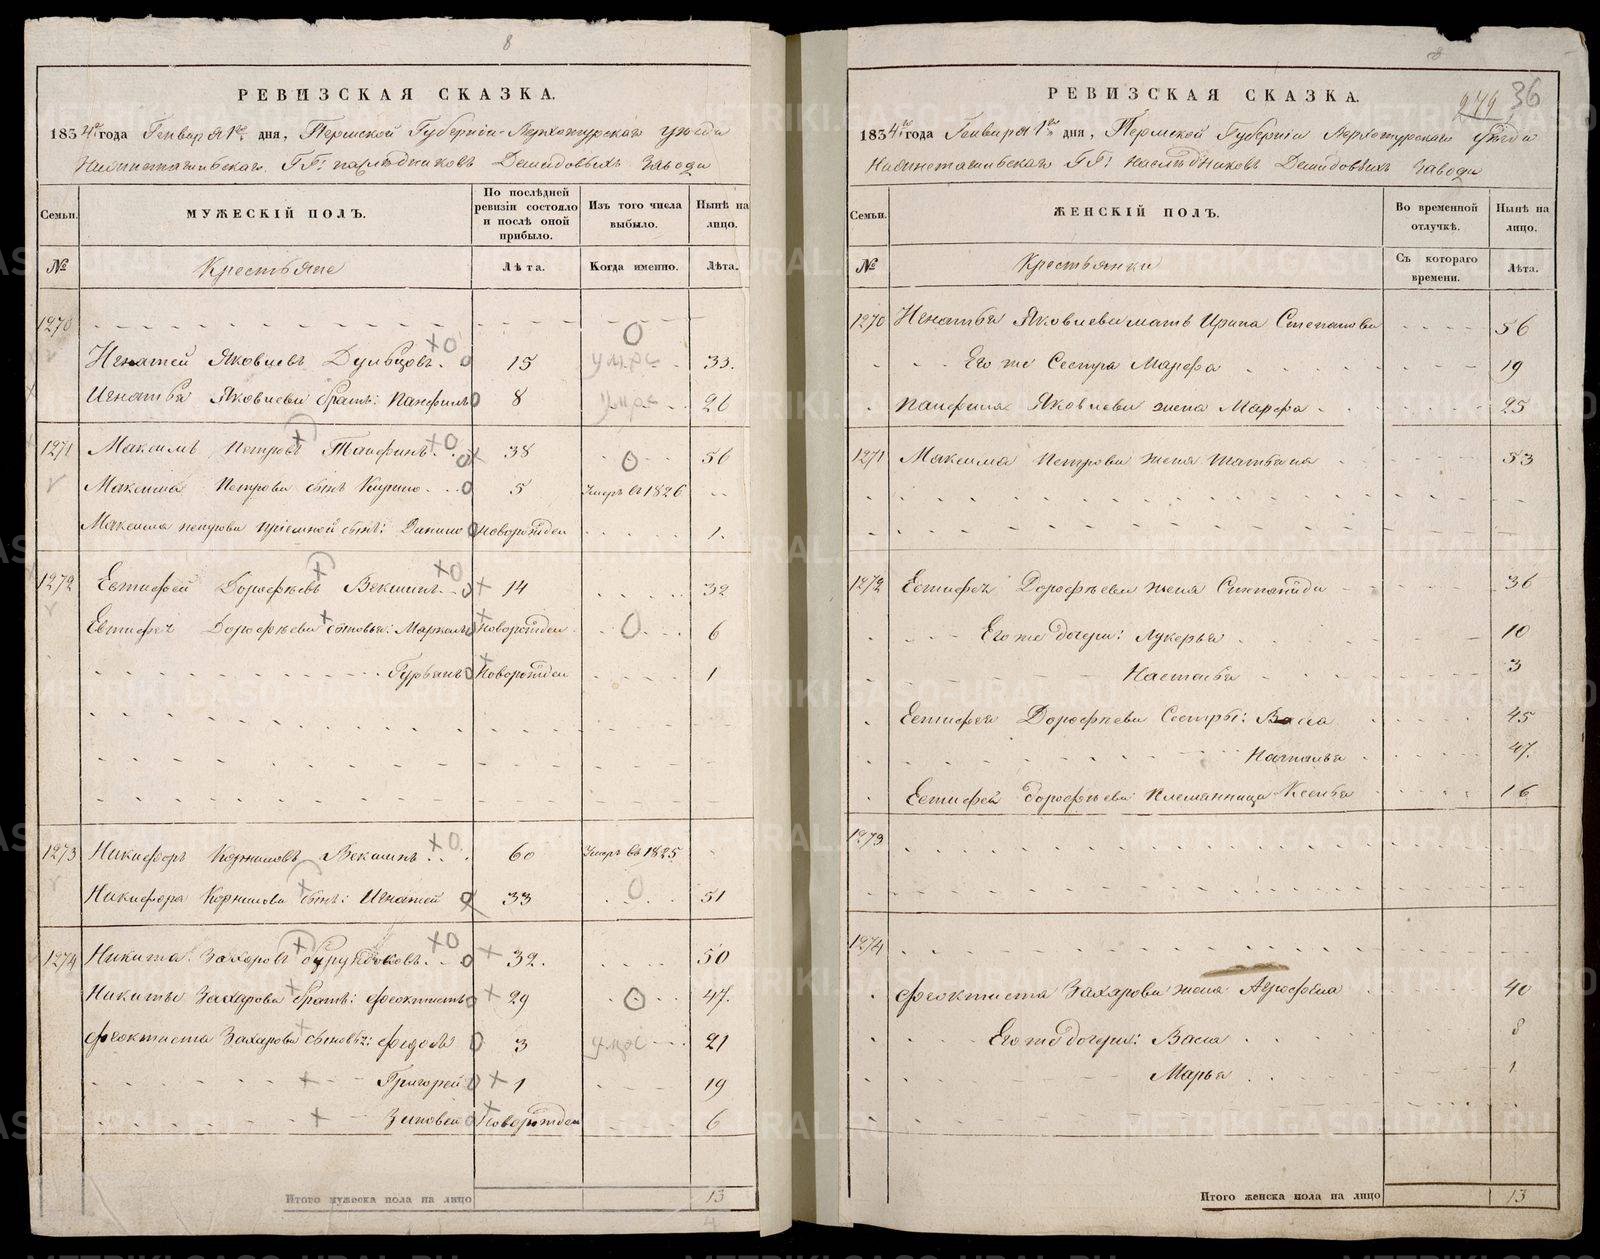 8
РЕВИЗСКАЯ СКАЗКА.
1834го года Генваря 1го дня, Пермской Губернiи Верхотурскаго уѣзда
Нижнетагильскаго ГГ: наслѣдниковъ Демидовыхъ завода
Семьи.
МУЖЕСКІЙ ПОЛЪ.
По послѣдней ревизіи состояло и послѣ оной прибыло.
Изъ того числа выбыло.
Нынѣ на лицо.
№
Крестьяне
Лѣта.
Когда именно.
Лѣта.
1270
Игнатей Яковлевъ Дульцовъ. 15 умре 33.
Игнатья Яковлева братъ: Панфилъ 8 умре 26
1271 Максимъ Петровъ Танфинъ 38 56
Максима Петрова сынъ Кирило 5 Умеръ въ 1826
Максима петрова прiемной сынъ: Данило Новорожден 1.
1272 Евтифей Дорофѣевъ Векшинъ 14 32
Евтифея Дорофѣева сыновья: Маркелъ Новорожден 6
Гурьянъ Новорожден 1
1273 Никифоръ Корниловъ Векшинъ 60 Умеръ въ 1825
Никифора Корнилова сынъ: Игнатей 33 51
1274 Никита Захаровъ бурундуковъ 32. 50
Никиты Захарова братъ: Феоктистъ 29 47.
Феоктиста Захарова сыновья: Федотъ 3 умре 21
Григорей 1 19
Зиновей Новорожден 6
Итого мужеска пола на лицо 13
4
8
272 36
РЕВИЗСКАЯ СКАЗКА.
1834го года Генваря 1го дня, Пермской Губернiи Верхотурскаго уѣзда
Нижнетагильскаго ГГ: наслѣдниковъ Демидовыхъ завода
Семьи.
ЖЕНСКІЙ ПОЛЪ.
Во временной отлучкѣ.
Нынѣ на лицо.
№
Крестьянки
Съ котораго времени.
Лѣта.
1270 Игнатья Яковлева мать Ирина Степанова 56
Его же Сестра Марфа 19
Панфила Яковлева жена Марфа 25
1271 Максима Петрова жена Татьяна 53
1272 Евтифея Дорофѣева жена Степанида 36
Его же дочери: Лукерья 10
Настасья 3
Евтифея Дорофѣева Сестры: Васса 45
Наталья 47.
Евтифея Дорофѣева племянница Ксенья 16
1273
1274
Феоктиста Захарова жена Агрофена 40
Его же дочери: Васса 8
Марья 1
Итого женска пола на лицо 13
METRIKI.GASO-URAL.RU